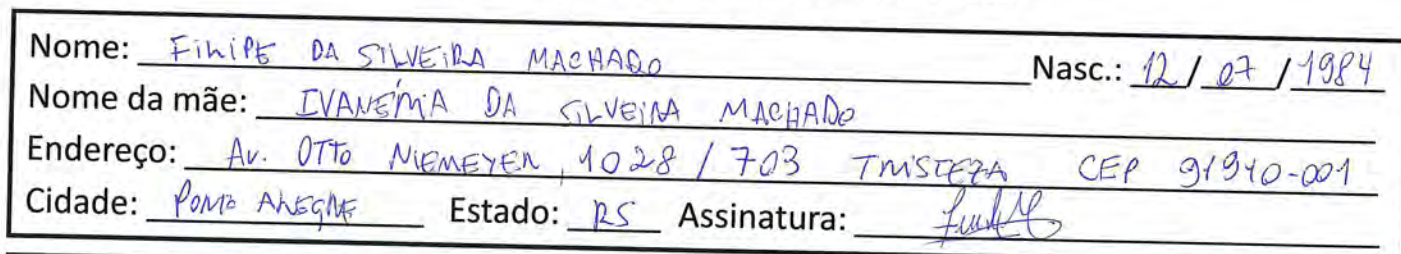 Nome: FILIPE DA SILVEIRA MACHADO Nasc.: 12/07/1984
Nome da mãe: IVANEMIA DA SILVEIRA MACHADO
Endereço: Av. OTTO NIEMEYER, 1028 / 703 TRISTEZA CEP 91910-001
Cidade: PORTO ALEGRE Estado: RS Assinatura: